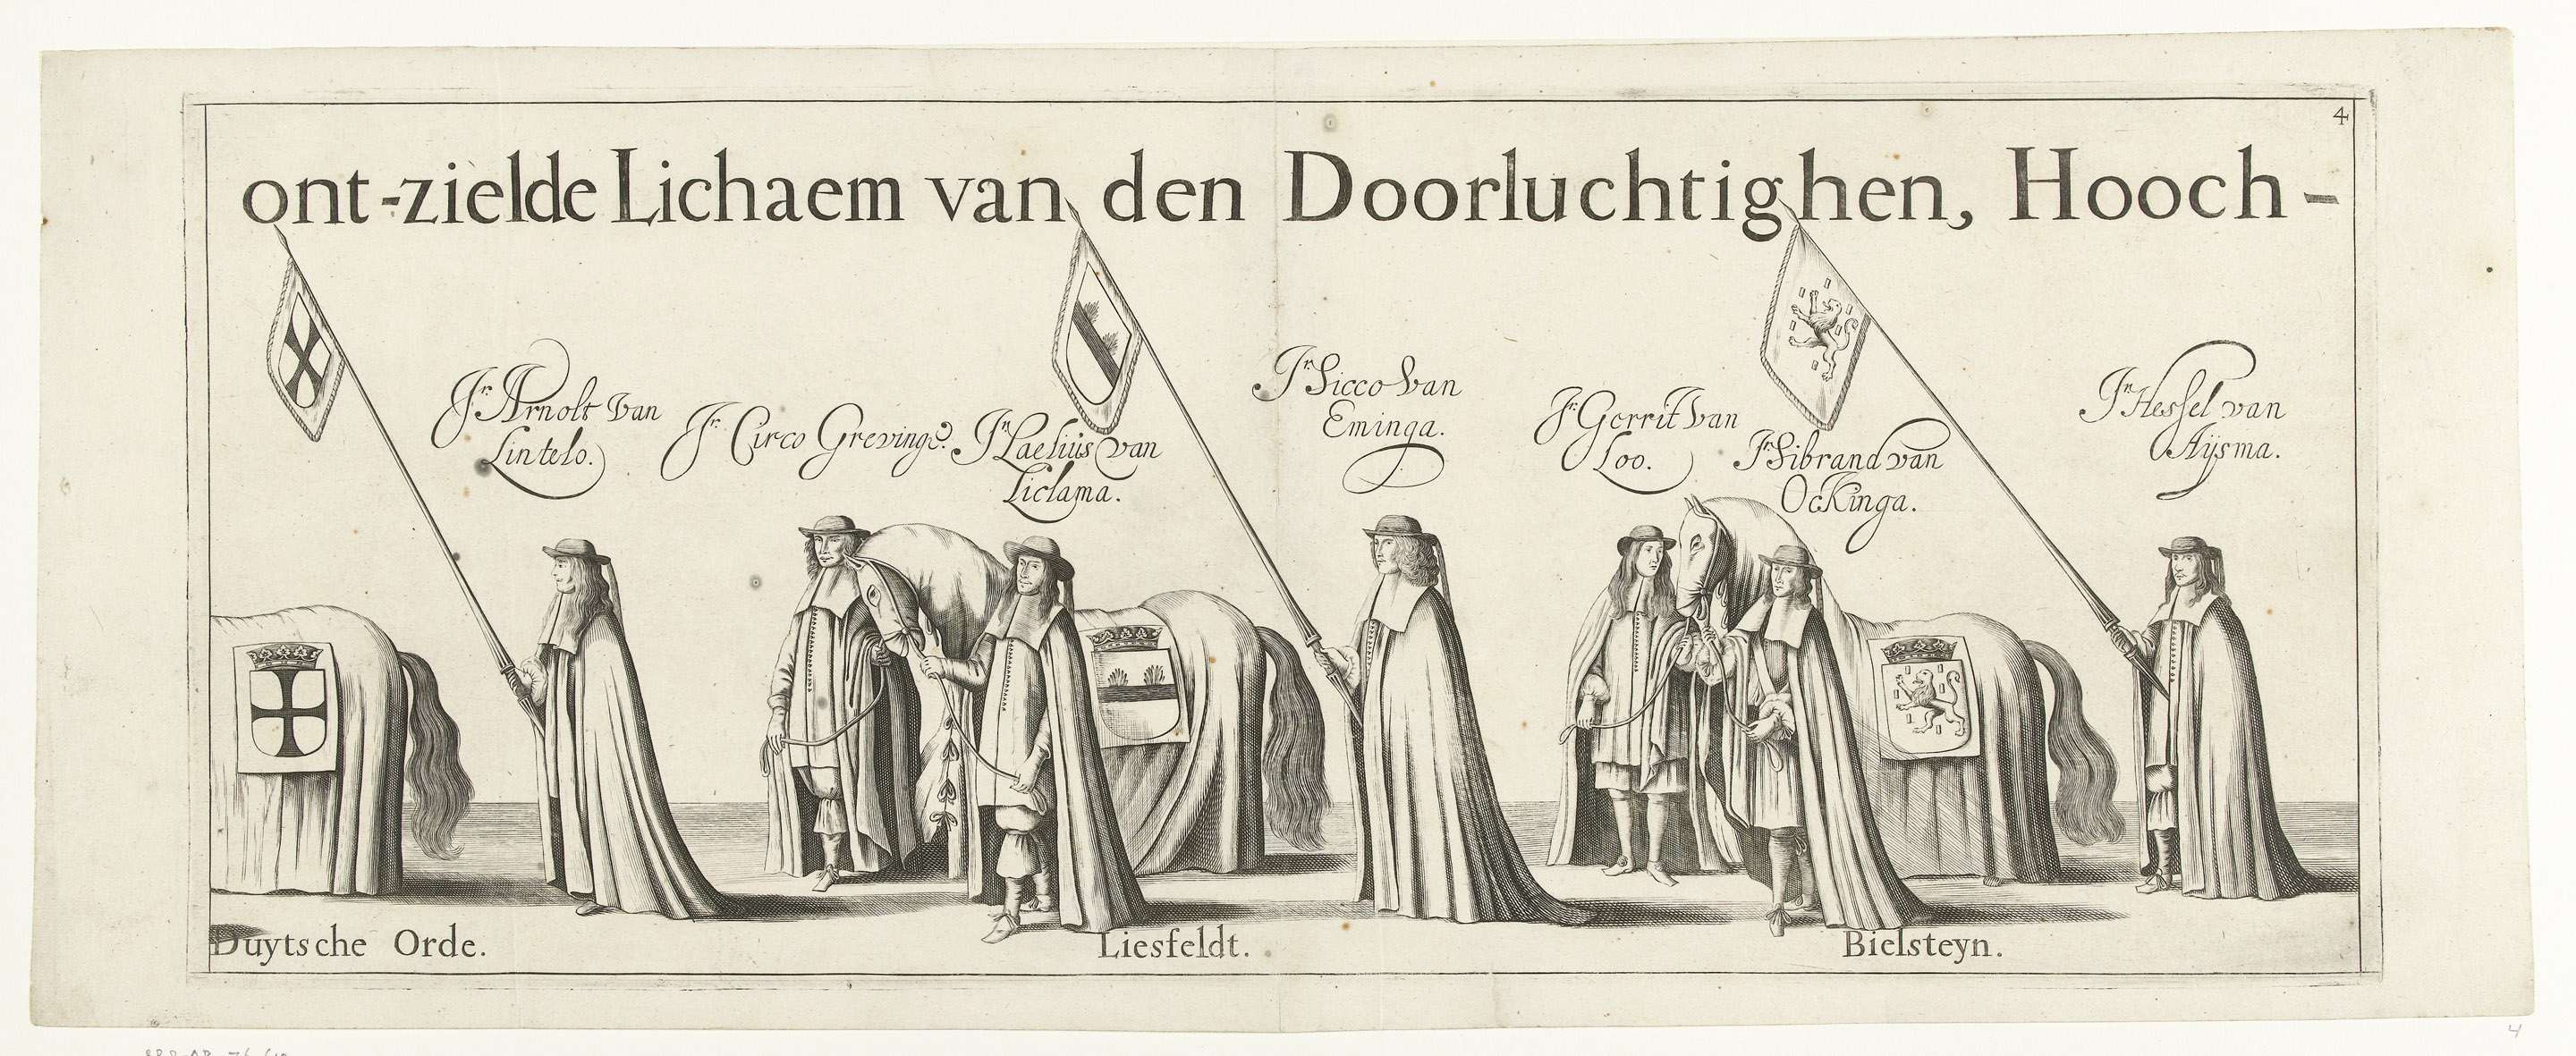 4
ont-zielde Lichaem van den Doorluchtighen, Hooch-
Jr. Arnolt Van
Lintelo.
Jr. Circo Grevinge.
Jr. Laelius van
Liclama.
Jr. Sicco Van
Eminga.
Jr. Gerrit Van
Loo.
Jr. Sibrand van
Ockinga.
Jr. Hessel van
Aysma.
Duytsche Orde.
Liesfeldt.
Bielsteyn.
4